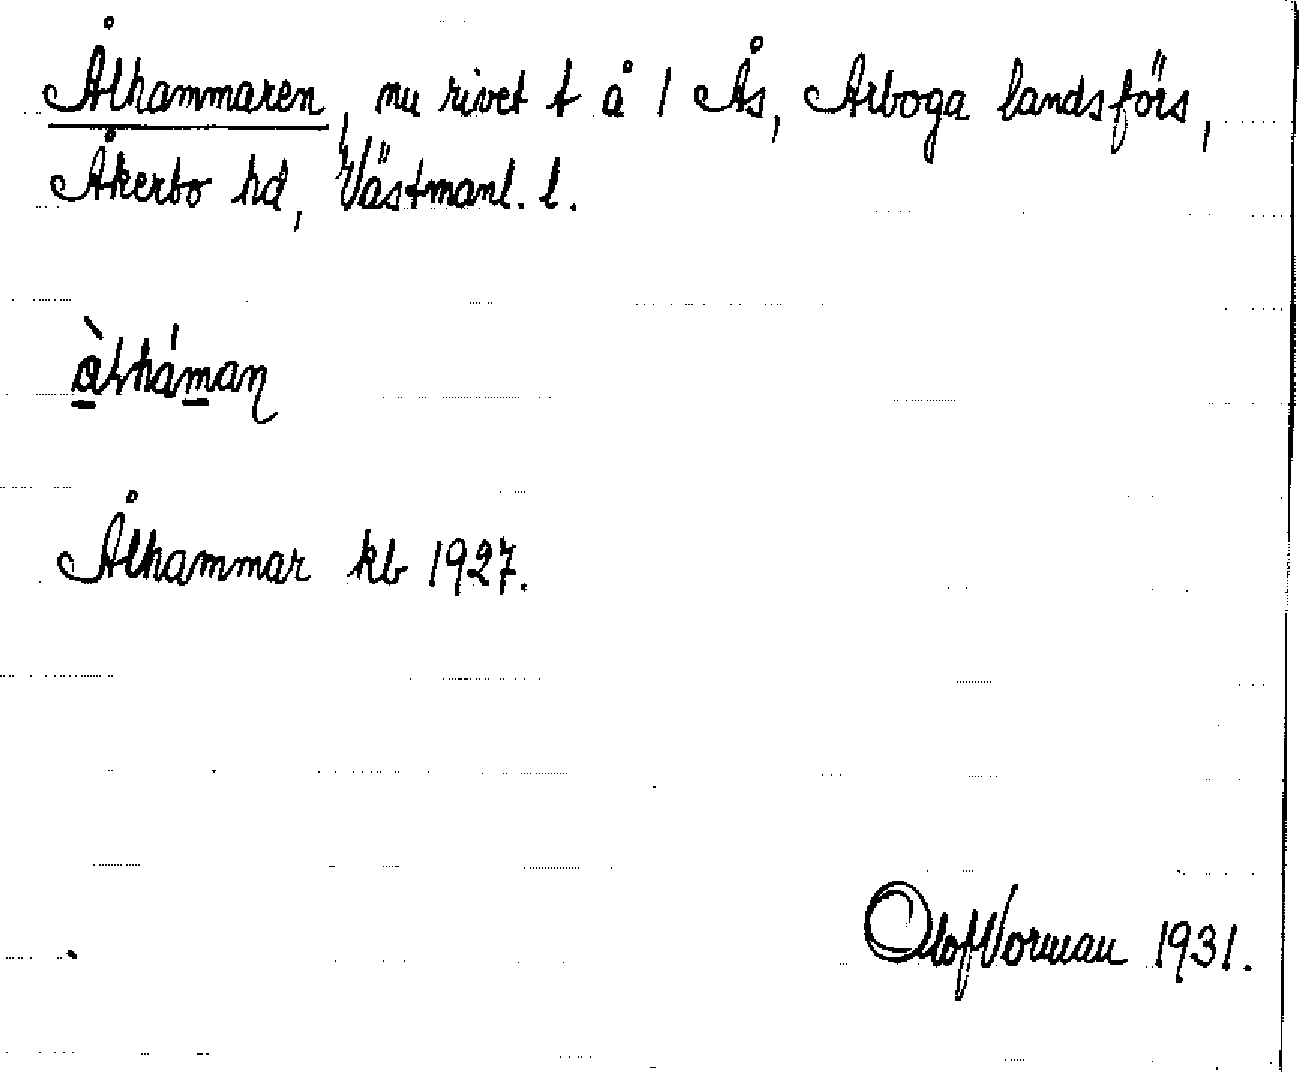 Ålhammaren, nu rivet t å 1 Ås, Arboga landsförs,
Åkerbo hd, Västmanl. l.
Ålhammar kb 1927.
Olof Vorman 1931.